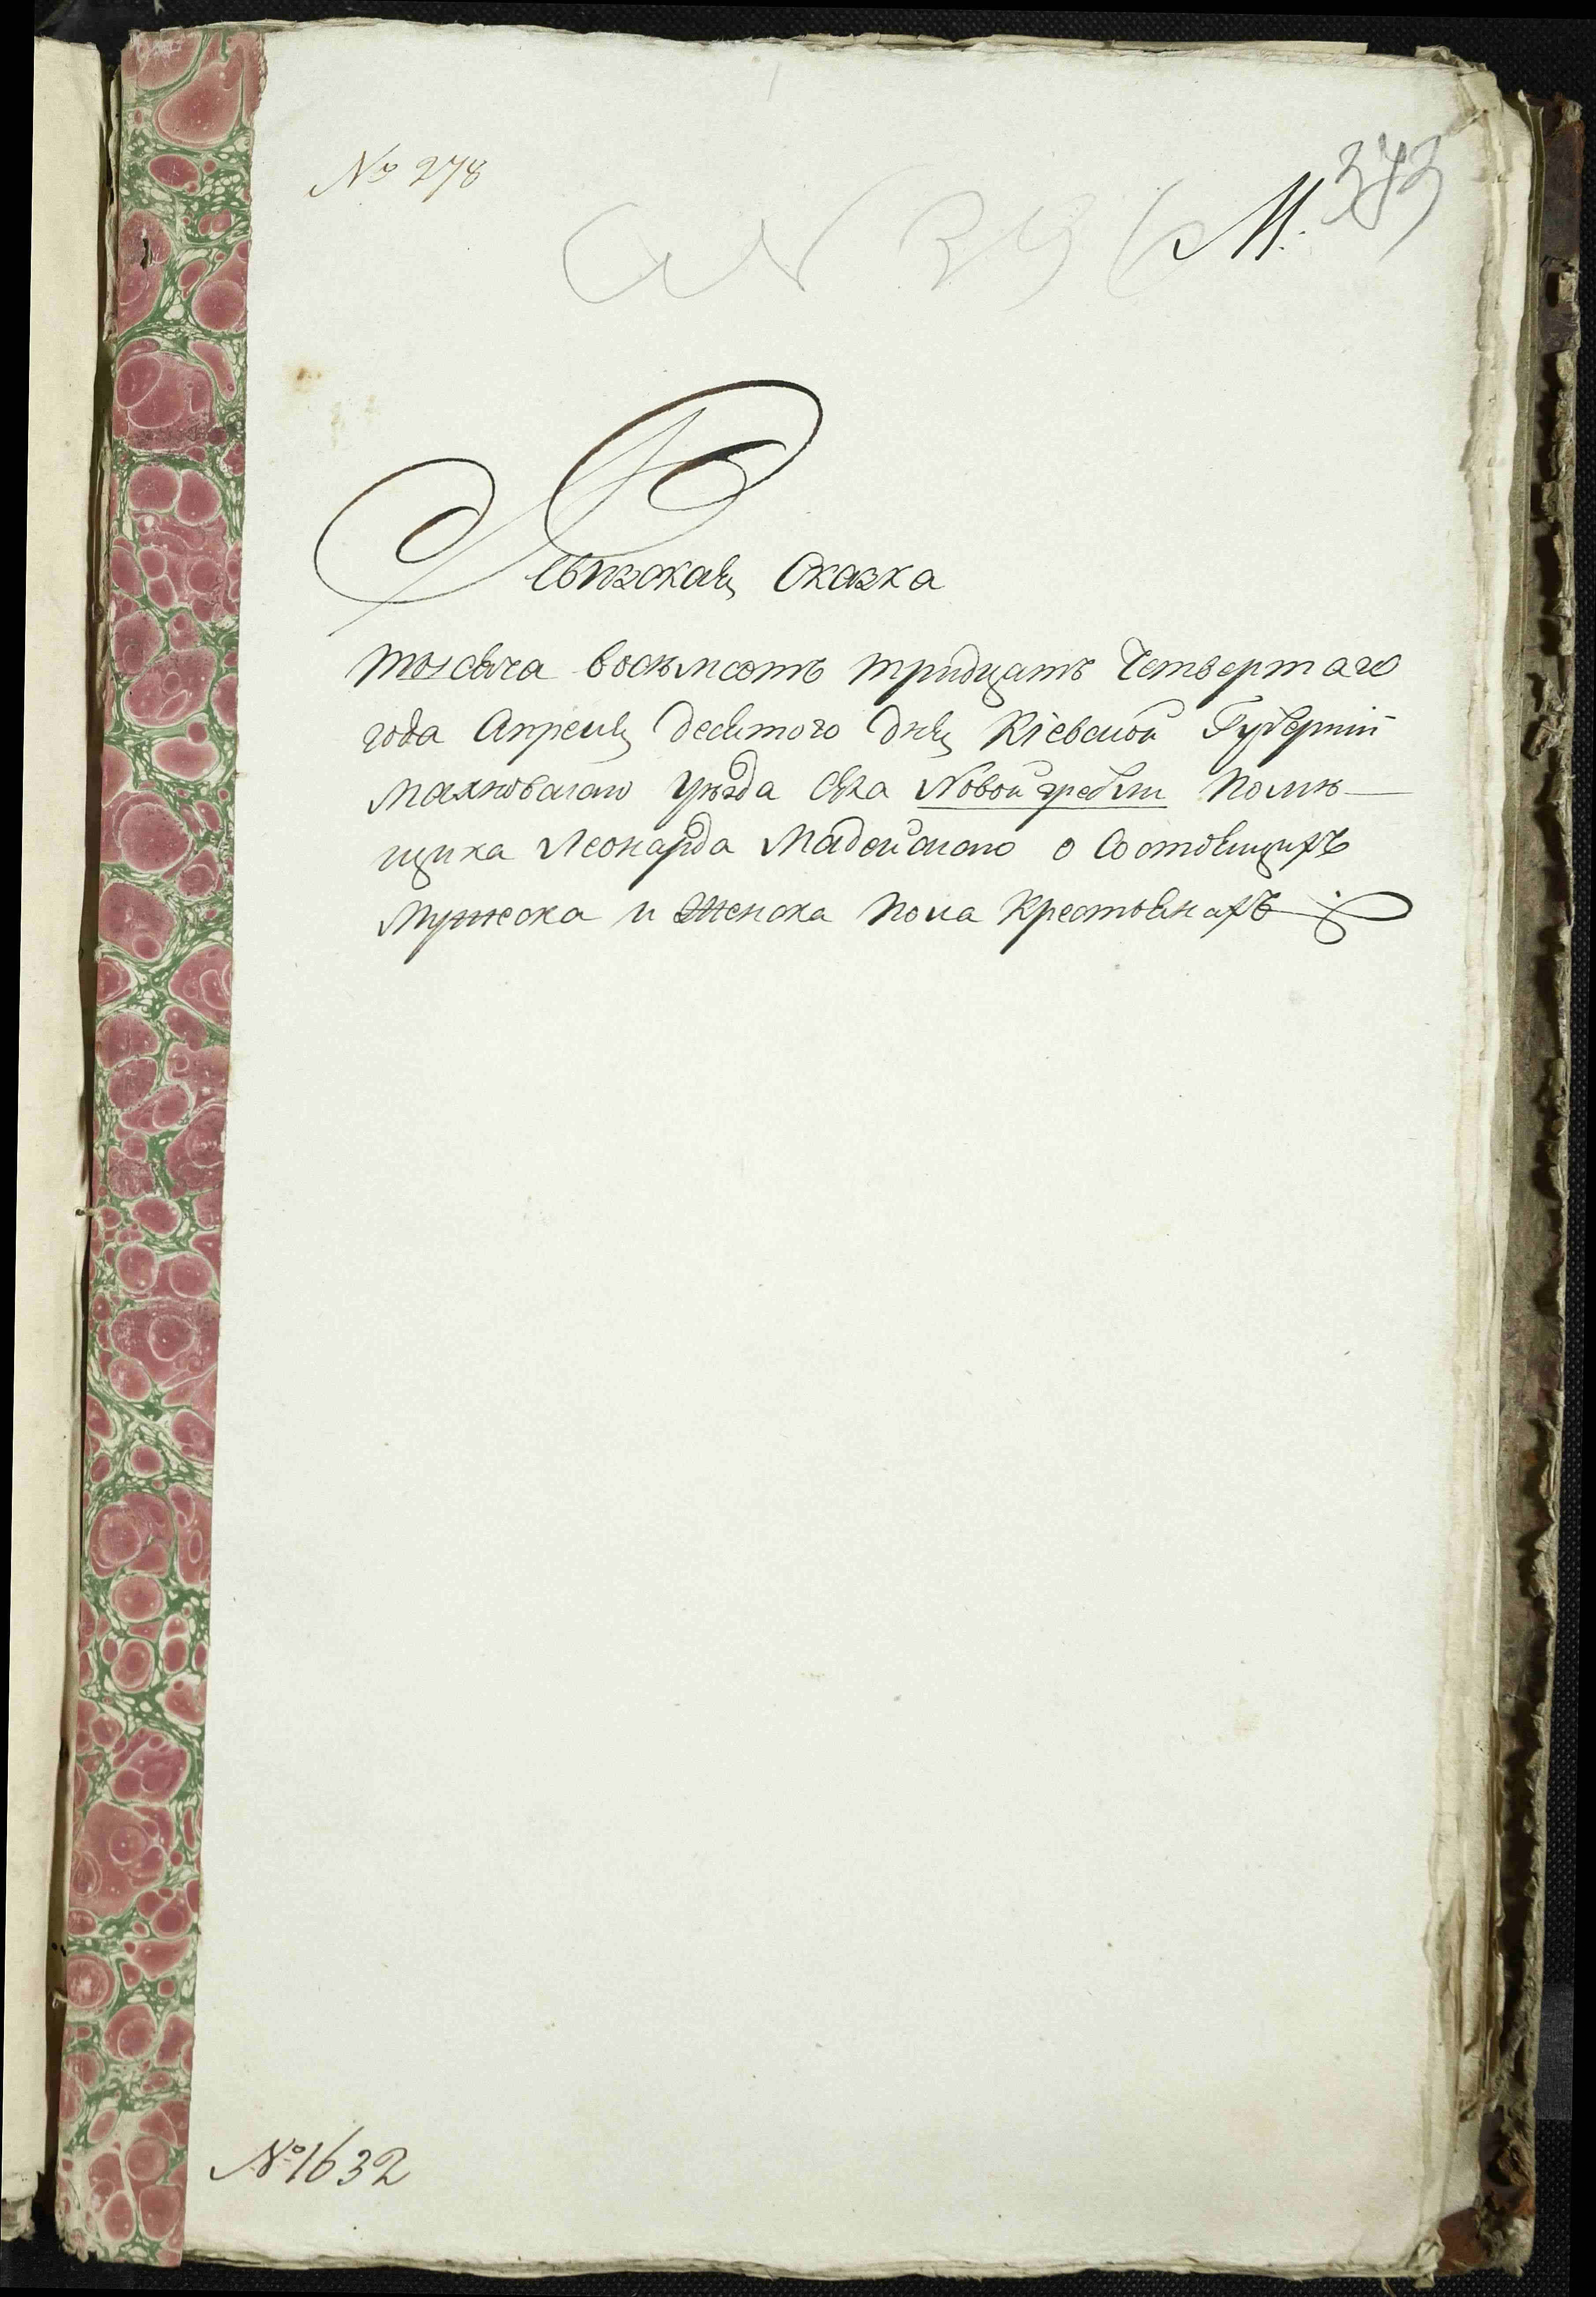 № 278
М. 373
Ревизская Сказка
тысяча восемьсотъ тридцать Четвертаго
года Апреля десятого дня Кіевской Губерніи
Махновского уезда села Новой гребли Поме-
щика Леонарда Мадейского о Состоящихъ
Мужеска и Женска пола Крестьянахъ
№ 1632